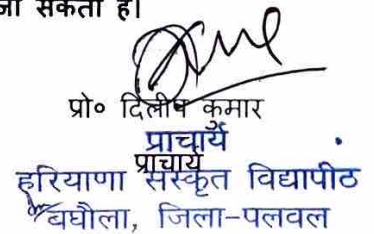 जा सकता है।
प्रो० दिलीप कुमार
प्राचार्य
प्राचार्य
हरियाणा संस्कृत विद्यापीठ
बघौला, जिला-पलवल